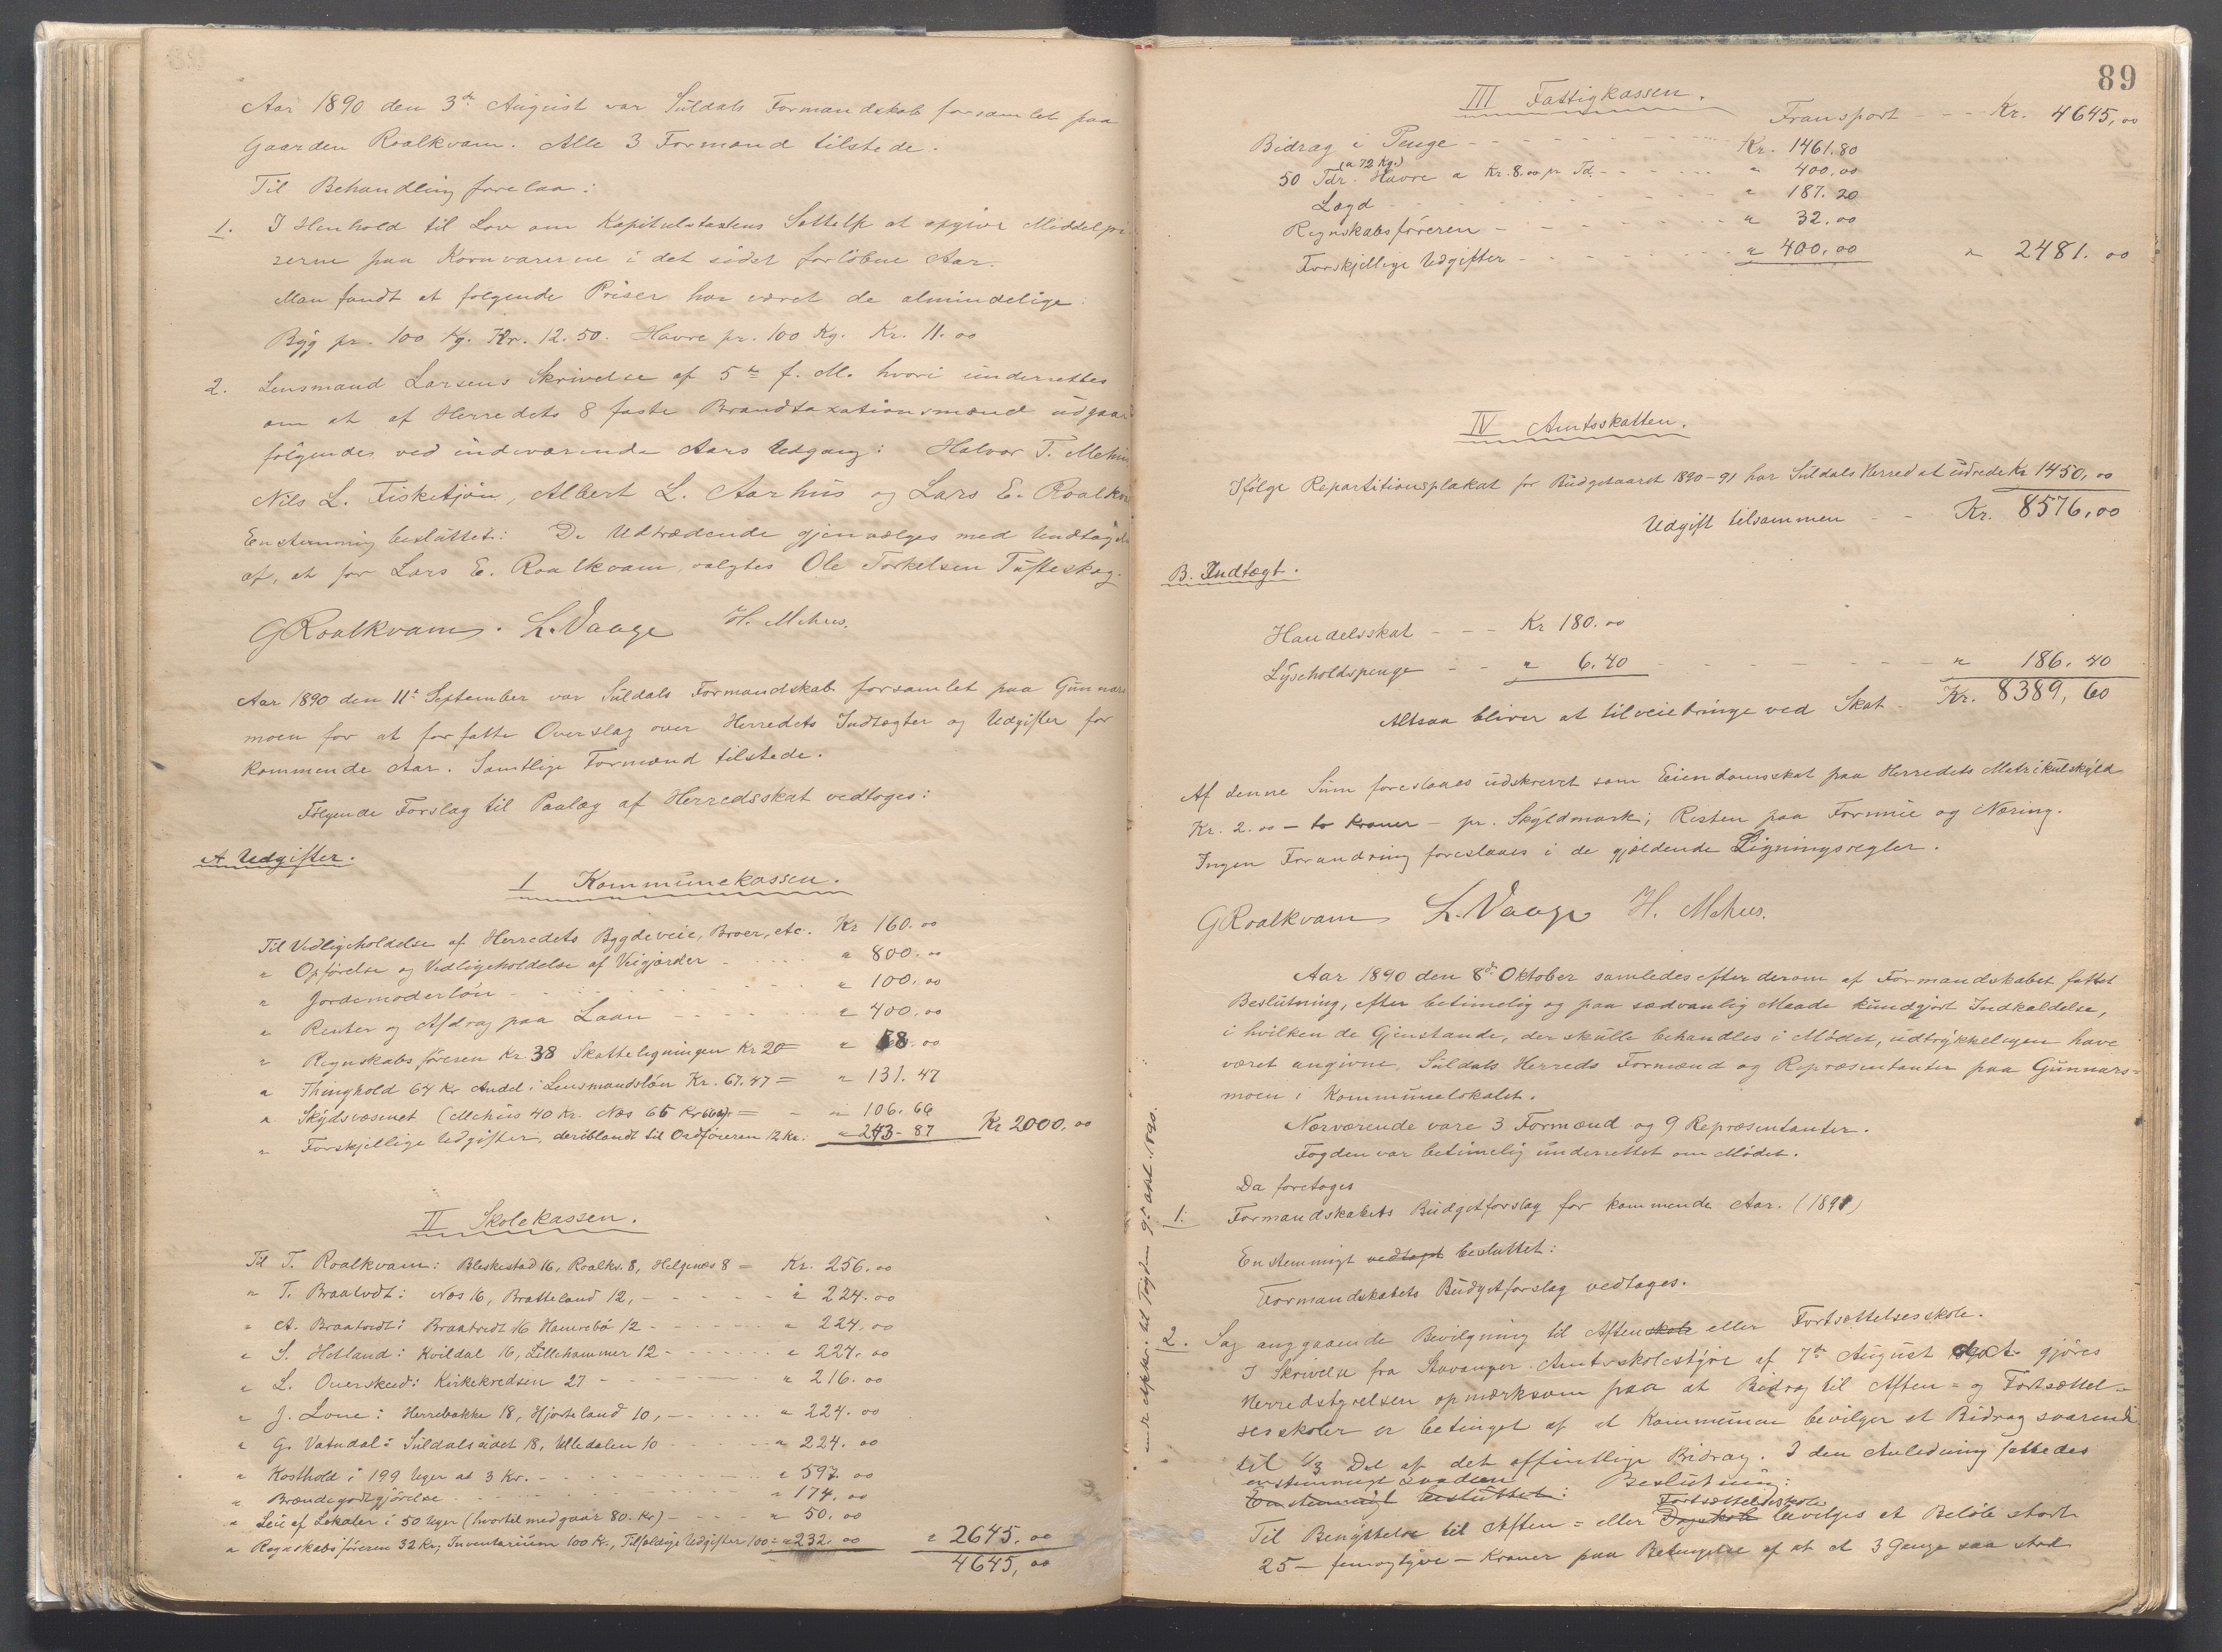 Aar 1890 den 3die August var Suldals Formandskab forsamlet paa
Gaarden Roalkvam. Alle 3 Formænd tilstede.
Til Behandling forelaa:
1. I Henhold til Lov om Kapitulstaxtens at opgive Middelpri
serne paa Kornvarerne i det sidst forløbne Aar.
Man fandt at følgende Priser har været de almindelige:
Byg pr. 100 Kg. Kr. 12.50. Havre pr. 100 Kg. Kr. 11.00
2. Lensmand Larsens Skrivelse af 5te f. M. hvori underrettes
om at af Herredets 8 faste Brandtaxationsmænd udgaar
følgende ved indeværende Aars Udgang: Halvor T. Mehus
Nils L. Fisketjøn, Albert L. Aarhus og Lars E. Roalkva
Enstemmig besluttet: De Udtrædende gjenvælges med Undtagelse
af, at for Lars E. Roalkvam valgtes Ole Torkelsen Tufteskog.
GRoalkvam. L. Vaage H. Mehus.
Aar 1890 den 11te September var Suldals Formandskab forsamlet paa Gunnars
moen for at forfatte Overslag over Herredets Indtægter og Udgifter for
kommende Aar. Samtlige Formænd tilstede.
Følgende Forslag til Paalæg af Herredsskat vedtoges:
A Udgifter.
I Kommunekassen.
Til Vedligeholdelse af Herredets Bygdeveie, Broer, etc. Kr 160.00
" Opførelse og Vedligeholdelse af Veigjærder " 800.00
" Jordemoderløn " 100.00
" Renter og Afdrag paa Laan " 400.00
" Regnskabsføreren Kr. 38 Skatteligningen Kr 20= " 58.00
" Thinghold 64 Kr Andel i Lensmandsløn Kr. 67.47= " 131.47
" Skydsvæsenet (Mehus 40 Kr. Næs 66 Kr 66ø)= " 106.66
" Forskjellige Udgifter, deriblandt til Ordføreren 12 Kr. " 243-87 Kr 2000.00
II Skolekassen.
Til T. Roalkvam: Bleskestad 16, Roalkv. 8, Helgenæs 8 = Kr. 256.00
" T. Braatvedt: Næs 16, Bratteland 12, " 224.00
" A. Braatvedt: Braatvedt 16 Hamrebø 12 " 224.00
" S. Hetland: Kvildal 16, Lillehammer 12 " 224.00
" L. Overskeid: Kirkekredsen 27 " 216.00
" J. Lone: Herrebakke 18, Hjorteland 10, " 224.00
" G. Vatndal: Suldalseidet 18, Ulledalen 10 " 224.00
" Kosthold i 199 Uger at 3 Kr. " 597.00
" Brændegodtgjørelse " 174.00
" Leie af Lokaler i 50 Uger (hvortil medgaar 80. Kr) " 50.00
" Regnskabsføreren 32 Kr, Inventarium 100 Kr., Tilfældige Udgifter 100= " 232.00 " 2645.00
4645,00
89
III Fattigkassen.
Transport Kr. 4645,00
Bidrag i Penge Kr. 1461.80
50 Tdr. (a 72 Kg.) Havre a Kr. 8.00 pr Td. " 400.00
Lægd " 187.20
Regnskabsføreren " 32.00
Forskjellige Udgifter " 400.00 " 2481.00
IV Amtsskatten.
Ifølge Repartitionsplakat for Budgetaaret 1890-91 har Suldals Herred at udrede Kr 1450,00
Udgift tilsammen Kr. 8576,00
B. Indtægt.
Handelsskat Kr 180.00
Lysholdspenge " 6.40 " 186.40
Altsaa bliver at tilveiebringe ved Skat Kr. 8389,60
Af denne Sum foreslaaes udskrevet som Eiendomsskat paa Herredets Matrikulskyld
Kr. 2.00 - to Kroner - pr. Skyldmark; Resten paa Formue og Næring.
Ingen Forandring foreslaaes i de gjældende Ligningsregler.
GRoalkvam L. Vaage H. Mehus.
Aar 1890 den 8de Oktober samledes efter derom af Formandskabet fattet
Beslutning, efter betimelig og paa sædvanlig Maade kundgjort Indkaldelse,
i hvilken de Gjenstande, der skulle behandles i Mødet, udtrykkeligen have
været angivne, Suldals Herreds Formænd og Repræsentanter paa Gunnars=
moen i Kommunelokalet.
Nærværende vare 3 Formænd og 9 Repræsentanter.
Fogden var betimelig underrettet om Mødet.
Da foretoges
1. Formandskabets Budgetforslag for kommende Aar. (1891)
Enstemmigt vedtaget besluttet:
Formandskabets Budgetforslag vedtages.
2. Sag angaaende Bevilgning til Aftenskole eller Fortsættelsesskole.
I Skrivelse fra Stavanger Amtsskolestyre af 7de August d. A. gjøres
Herredstyrelsen opmærksom paa at Bidrag til Aften= og Fortsættel=
sesskoler er betinget af at Kommunen bevilger et Bidrag svarende
til 1/3 Del af det offentlige Bidrag. I den Anledning fattedes
enstemmigt saadan Beslutning:
Enstemmigt besluttet:
Til Benyttelse til Aften= eller Dagskole Fortsættelsesskole bevilges et Beløb stort
25 - femogtyve - Kroner paa Betingelse af at et 3 Gange saa stort
sendt Afskr. til Fogden 9de Okt. 1890.